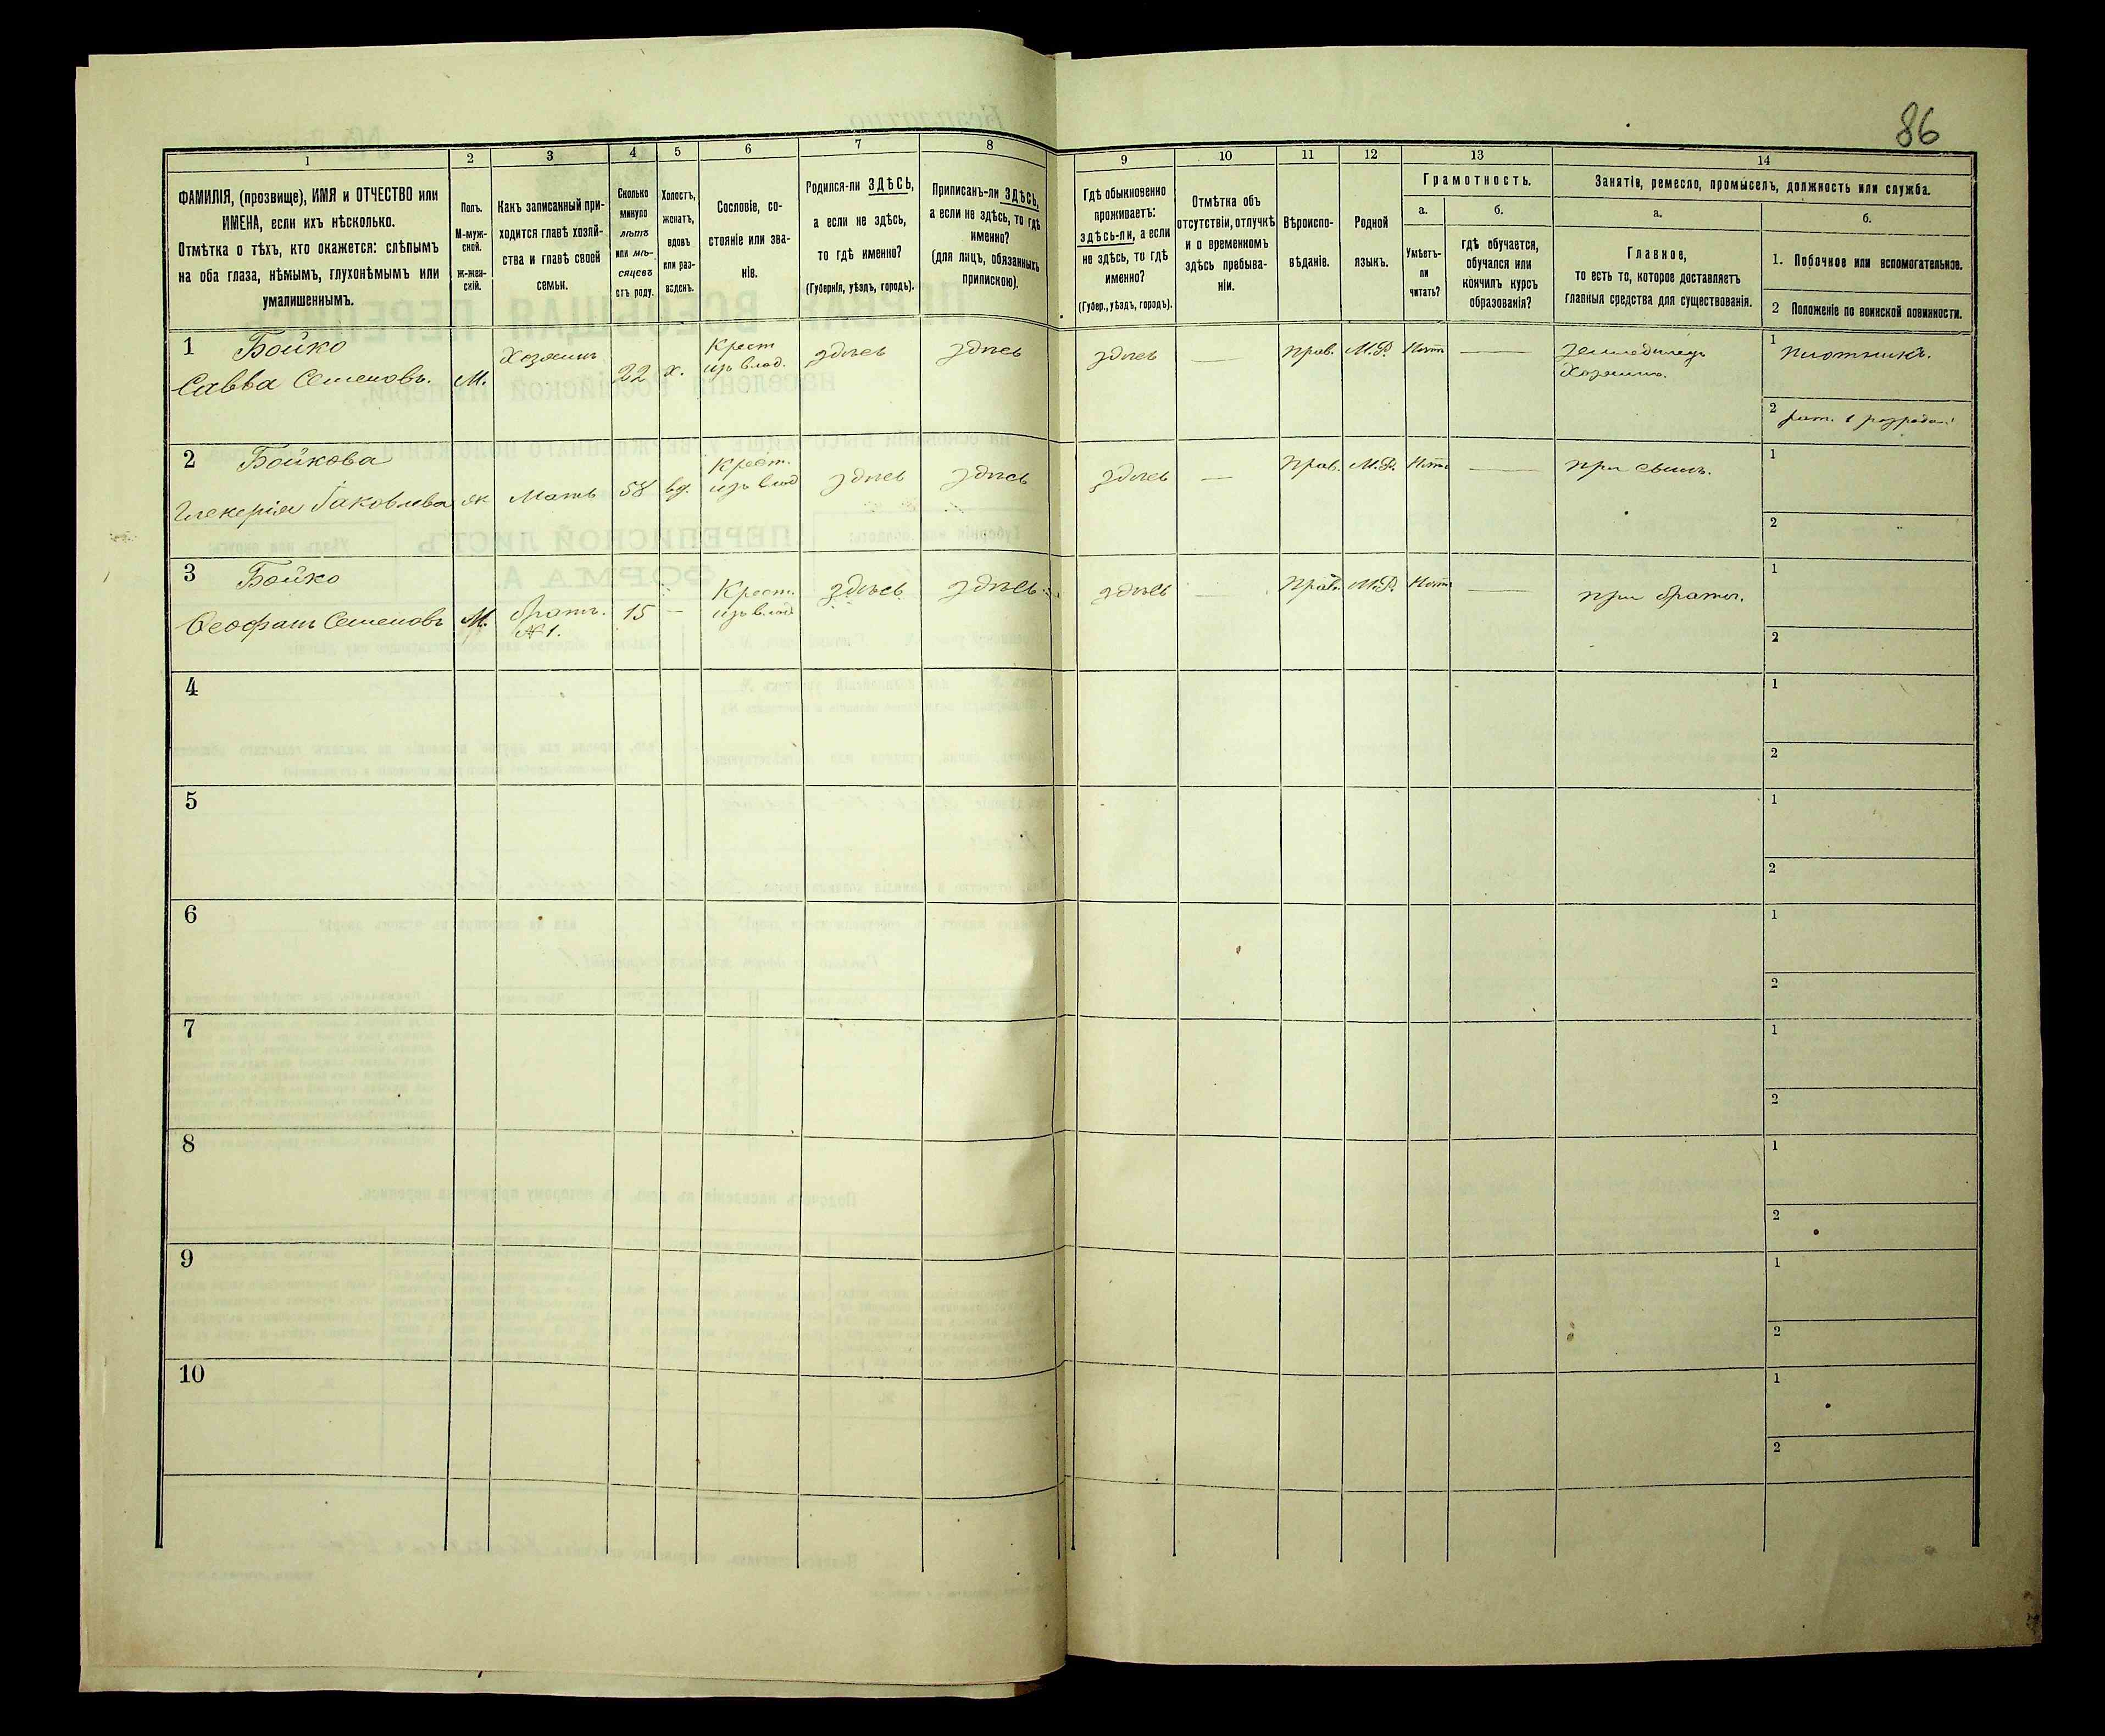 86
1
2
3
4
5
6
7
8
9
10
11
12
13
14
ФАМИЛІЯ, (прозвище), ИМЯ и ОТЧЕСТВО или
ИМЕНА, если ихъ нѣсколько.
Отмѣтка о тѣхъ, кто окажется: слѣпымъ
на оба глаза, нѣмымъ, глухонѣмымъ или
умалишеннымъ.
Полъ.
М-муж-
ской.
Ж-жен-
скій.
Какъ записанный при-
ходится главѣ хозяй-
ства и главѣ своей
семьи.
Сколько
минуло
лѣтъ
или мѣ-
сяцевъ
отъ роду.
Холостъ,
женатъ,
вдовъ
или раз-
веденъ.
Сословіе, со-
стояніе или зва-
ніе.
Родился-ли ЗДѢСЬ,
а если не здѣсь,
то гдѣ именно?
(Губернія, уѣздъ, городъ).
Приписанъ-ли ЗДѢСЬ,
а если не здѣсь, то гдѣ
именно?
(для лицъ, обязанныхъ
припискою).
Гдѣ обыкновенно
проживаетъ:
здѣсь-ли, а если
не здѣсь, то гдѣ
именно?
(Губер., уѣздъ, городъ).
Отмѣтка объ
отсутствіи, отлучкѣ
и о временномъ
здѣсь пребыва-
ніи.
Вѣроиспо-
вѣданіе.
Родной
языкъ.
Грамотность.
а.
Умѣетъ-
ли
читать?
б.
гдѣ обучается,
обучался или
кончилъ курсъ
образованія?
Занятія, ремесло, промыселъ, должность или служба.
а.
Главное,
то есть то, которое доставляетъ
главныя средства для существованія.
б.
1. Побочное или вспомогательное.
2 Положеніе по воинской повинности.
1 Бойко
Савва Семеновъ.
М.
Хозяинъ
22
х.
Крест
изъ влад.
здѣсь
здѣсь
здѣсь
—
прав.
М.Р.
Нѣтъ
—
Земледѣлецъ
Хозяинъ.
1 плотникъ.
2 рат. 1 разряда
2 Бойкова
Гликерія Іаковлева
ж
Мать
58
вд.
Крест.
изъ влад
здѣсь
здѣсь
здѣсь
—
Прав.
М.Р.
Нѣтъ
—
при сынѣ.
1
2
3 Бойко
Ѳеофанъ Семеновъ
М.
братъ.
№1.
15
—
Крест.
изъ влад
здѣсь
здѣсь
здѣсь
—
Прав.
М.Р.
Нѣтъ
—
при братѣ.
1
2
4
1
2
5
1
2
6
1
2
7
1
2
8
1
2
9
1
2
10
1
2